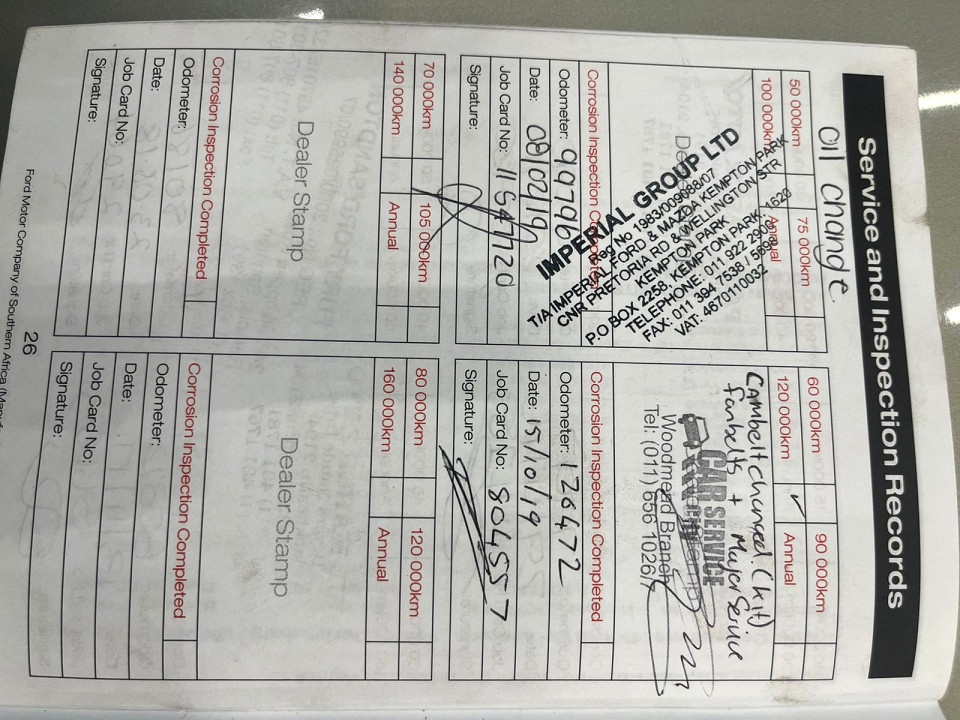 Service and Inspection Records
Oil change
50 000km
75 000km
100 000km
Annual
IMPERIAL GROUP LTD
Reg No 1983/009088/07
T/A IMPERIAL FORD & MAZDA KEMPTON PARK
CNR PRETORIA RD & WELLINGTON STR
KEMPTON PARK
P.O BOX 2258, KEMPTON PARK, 1620
TELEPHONE: 011 922 2909
FAX: 011 394 7538 / 5696
VAT: 4670110032
Corrosion Inspection Completed
Odometer: 99796
Date: 08/02/19
Job Card No: 11547720
Signature:
60 000km
90 000km
120 000km ✓
Annual
Cambelt changed. (kit)
fanbelts + Major Service
CAR SERVICE
Woodmead Branch
Tel: (011) 656 1026/7
Corrosion Inspection Completed
Odometer: 126472
Date: 15/10/19
Job Card No: 804557
Signature:
70 000km
105 000km
140 000km
Annual
Dealer Stamp
Corrosion Inspection Completed
Odometer:
Date:
Job Card No:
Signature:
80 000km
120 000km
160 000km
Annual
Dealer Stamp
Corrosion Inspection Completed
Odometer:
Date:
Job Card No:
Signature:
26
Ford Motor Company of Southern Africa